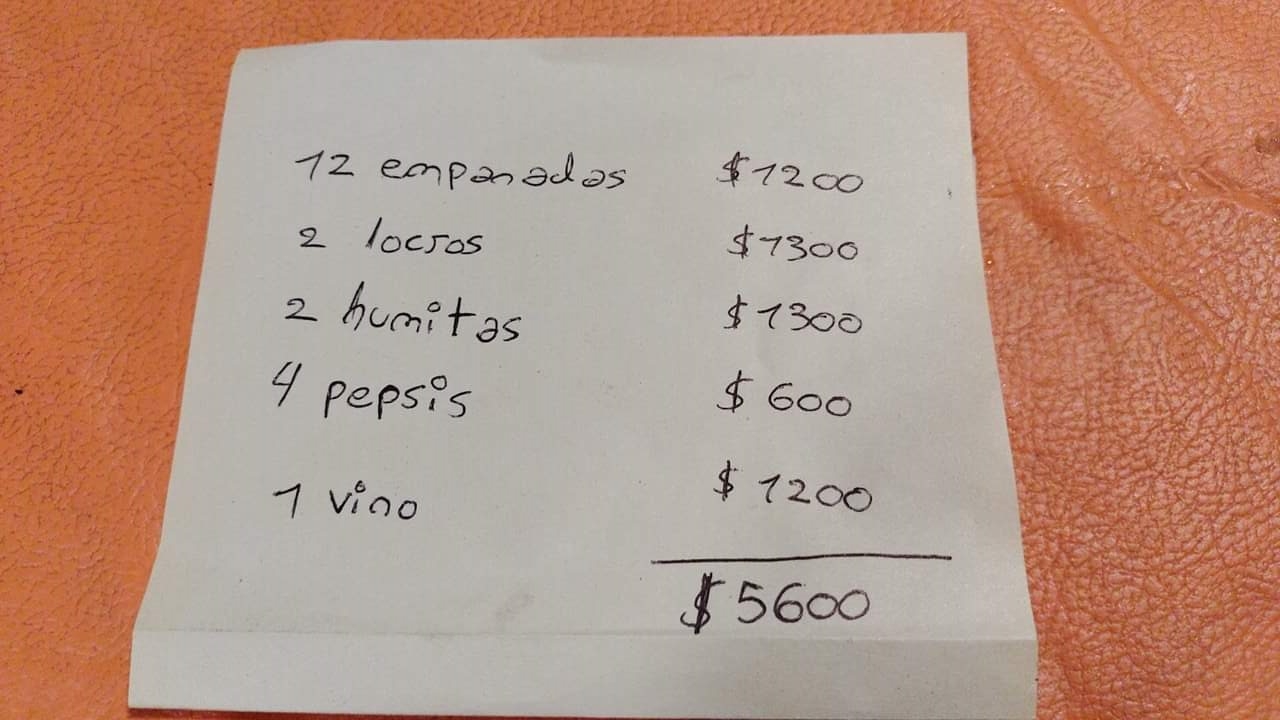 12 empanadas $1200
2 locros $1300
2 humitas $1300
4 pepsis $600
1 vino $1200
$5600